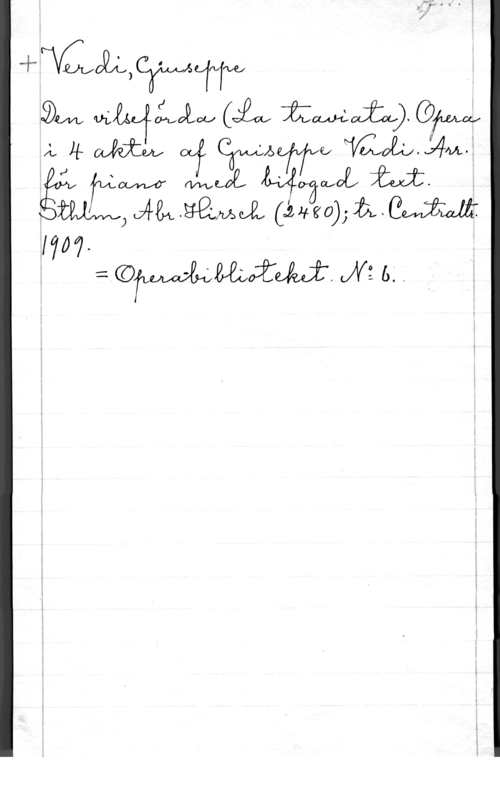 + Verdi, Giuseppe
Den vilseförda (La traviata). Opera
i 4 akter af Guiseppe Verdi. Arr.
för piano med bifogad text.
Sthlm, Abr. Hirsch (2480); tr. Centraltr.
1909.
= Operabiblioteket. Nº 6.